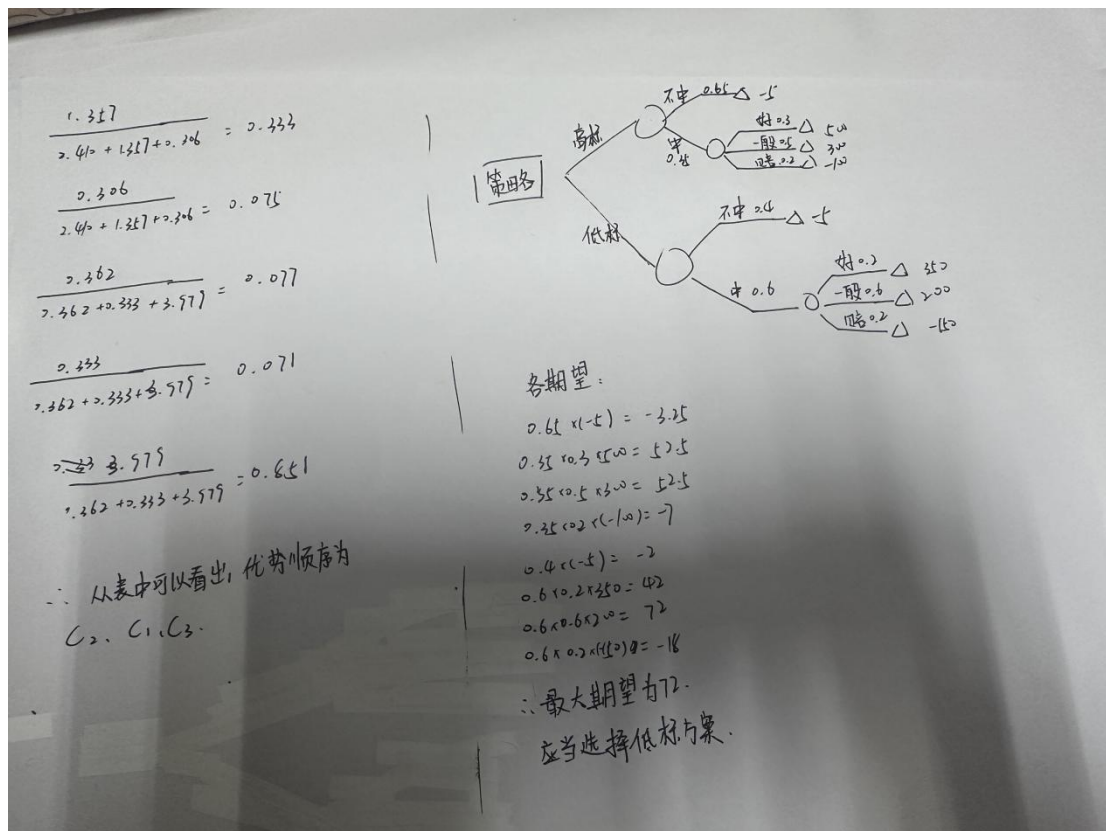 1.357
2.410 + 1.357 + 0.306 = 0.333
0.306
2.410 + 1.357 + 0.306 = 0.075
0.362
0.362 + 0.333 + 3.979 = 0.077
0.333
0.362 + 0.333 + 3.979 = 0.071
3.979
0.362 + 0.333 + 3.979 = 0.851
∴ 从表中可以看出,优势顺序为
C2、C1、C3.
策略
高标
不中 0.65 △ -5
中
0.35
好 0.3 △ 500
一般 0.5 △ 300
赔 0.2 △ -100
低标
不中 0.4 △ -5
中 0.6
好 0.2 △ 350
一般 0.6 △ 200
赔 0.2 △ -150
各期望:
0.65 × (-5) = -3.25
0.35 × 0.3 × 500 = 52.5
0.35 × 0.5 × 300 = 52.5
0.35 × 0.2 × (-100) = -7
0.4 × (-5) = -2
0.6 × 0.2 × 350 = 42
0.6 × 0.6 × 200 = 72
0.6 × 0.2 × (-150) = -18
∴ 最大期望为72.
应当选择低标方案.